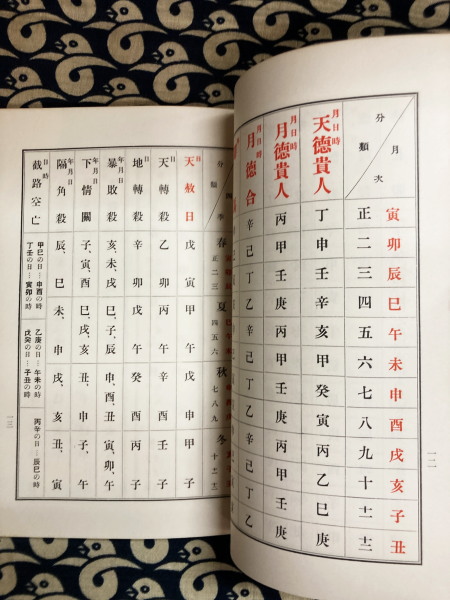 月次 寅 卯 辰 巳 午 未 申 酉 戌 亥 子 丑
分類 正 二 三 四 五 六 七 八 九 十 十一 十二
月日時 天德貴人 丁 申 壬 辛 亥 甲 癸 寅 丙 乙 巳 庚
月日時 月德貴人 丙 甲 壬 庚 丙 甲 壬 庚 丙 甲 壬 庚
月日時 月德合 辛 己 丁 乙 辛 己 丁 乙 辛 己 丁 乙
一二
季 春 正二三 夏 四五六 秋 七八九 冬 十十一十二
分類
日 天赦日 戊寅 甲午 戊申 甲子
日 天轉殺 乙卯 丙午 辛酉 壬子
日 地轉殺 辛卯 戊午 癸酉 丙子
年月日 暴敗殺 亥、未、戌 巳、子、辰 申、酉、丑 寅、卯、午
年月日 下情關 子、寅、酉 巳、戌、亥 丑、申 子、午
年月日 隔角殺 辰、巳 未、申 戌、亥 丑、寅
日時 截路空亡
甲己の日…申酉の時 乙庚の日…午未の時 丙辛の日…辰巳の時
丁壬の日…寅卯の時 戊癸の日…子丑の時
一三